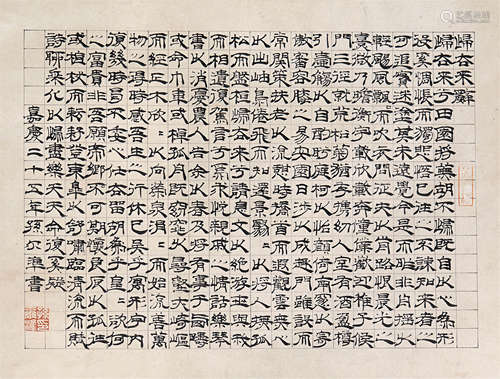 歸去來辭
歸去來兮田園將蕪胡不歸既自以心為形
役奚惆悵而獨悲悟已往之不諫知來者之
可追實迷途其未遠覺今是而昨非舟搖以
輕颺風飄而吹衣問征夫以前路恨晨光之
熹微乃瞻衡宇載欣載奔僮僕歡迎稚子候
門三徑就荒松菊猶存攜幼入室有酒盈樽
引壺觴以自酌眄庭柯以怡顏倚南窗以寄
傲審容膝之易安園日涉以成趣門雖設而
常關策扶老以流憩時矯首而遐觀雲無心
以出岫鳥倦飛而知還景翳〻以將入撫孤
松而盤桓歸去來兮請息交以絕游世與我
而相遺復駕言兮焉求悅親戚之情話樂琴
書以消憂農人告余以春及將有事乎西疇
或命巾車或棹孤舟既窈窕以尋壑亦崎嶇
而經丘木欣〻以向榮泉涓〻而始流善萬
物之得時感吾生之行休已矣乎寓形宇內
復幾時曷不委心任去留胡為乎皇〻欲何
之富貴非吾願帝鄉不可期懷良辰以孤往
或植杖而耘耔登東皋以舒嘯臨清流而賦
詩聊乘化以歸盡樂夫天命復奚疑
嘉慶二十五年孫爾準書